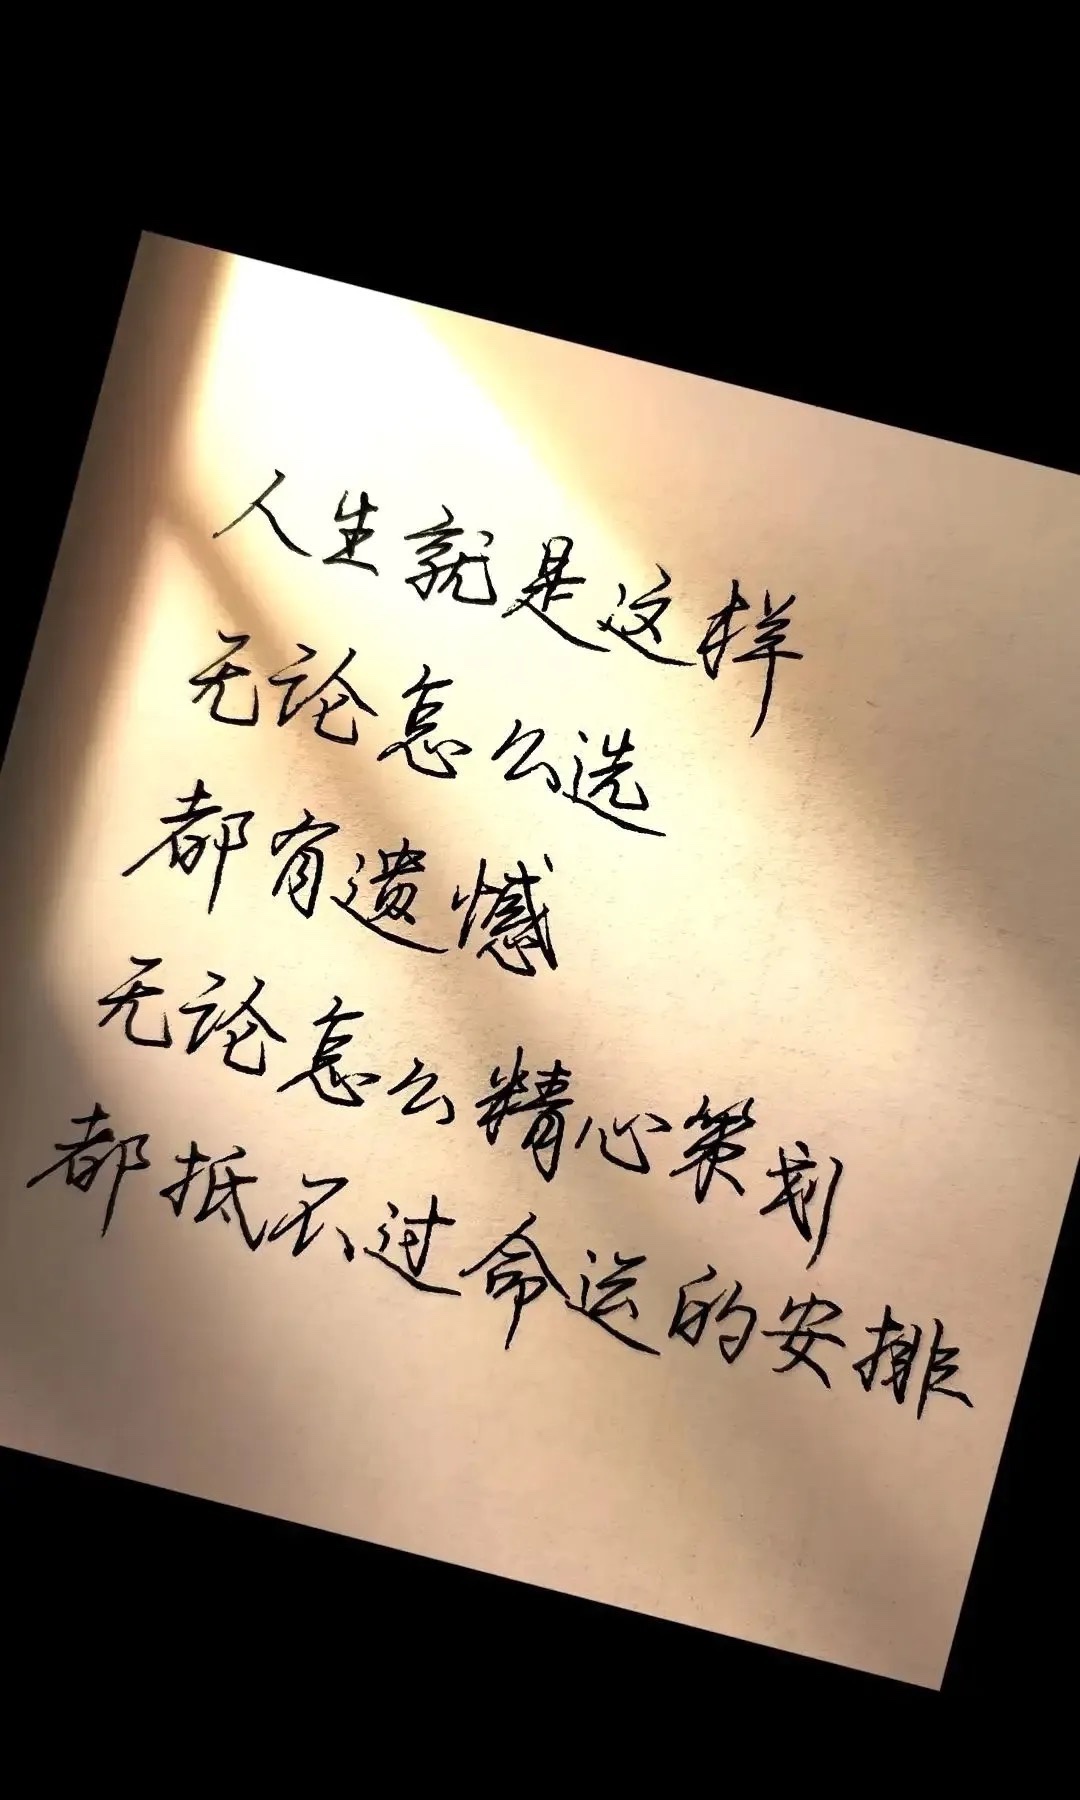 人生就是这样
无论怎么选
都有遗憾
无论怎么精心策划
都抵不过命运的安排